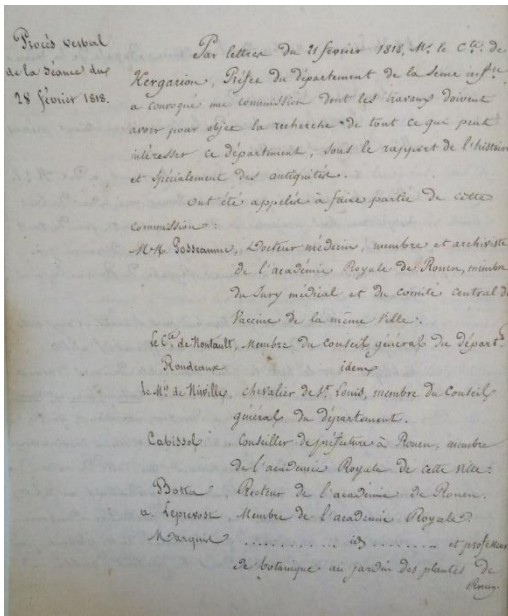 Procès verbal
de la séance du
28 février 1818.
Par lettres du 21 février 1818, Mr. le Cte. de
Kergariou, Préfet du département de la Seine infre.
a convoqué une commission dont les travaux doivent
avoir pour objet la recherche de tout ce qui peut
intéresser ce département, sous le rapport de l'histoire
et spécialement des antiquités.
Ont été appelés à faire partie de cette
commission :
M.M. Gosseaume, Docteur médecin, membre et archiviste
de l'académie Royale de Rouen, membre
du Jury médical et du comité central de
Vaccine de la même ville.
le Cte. de Montault, Membre du Conseil général du départt.
Rondeaux idem
le Mis. de Niville, chevalier de St. Louis, membre du Conseil
général du département.
Cabissol Conseiller de préfecture à Rouen, membre
de l'académie Royale de cette ville.
Botta Recteur de l'académie de Rouen.
a. Leprevost Membre de l'académie Royale.
Marquis .......... id ........ et professeur
de botanique au jardin des plantes de
Rouen.